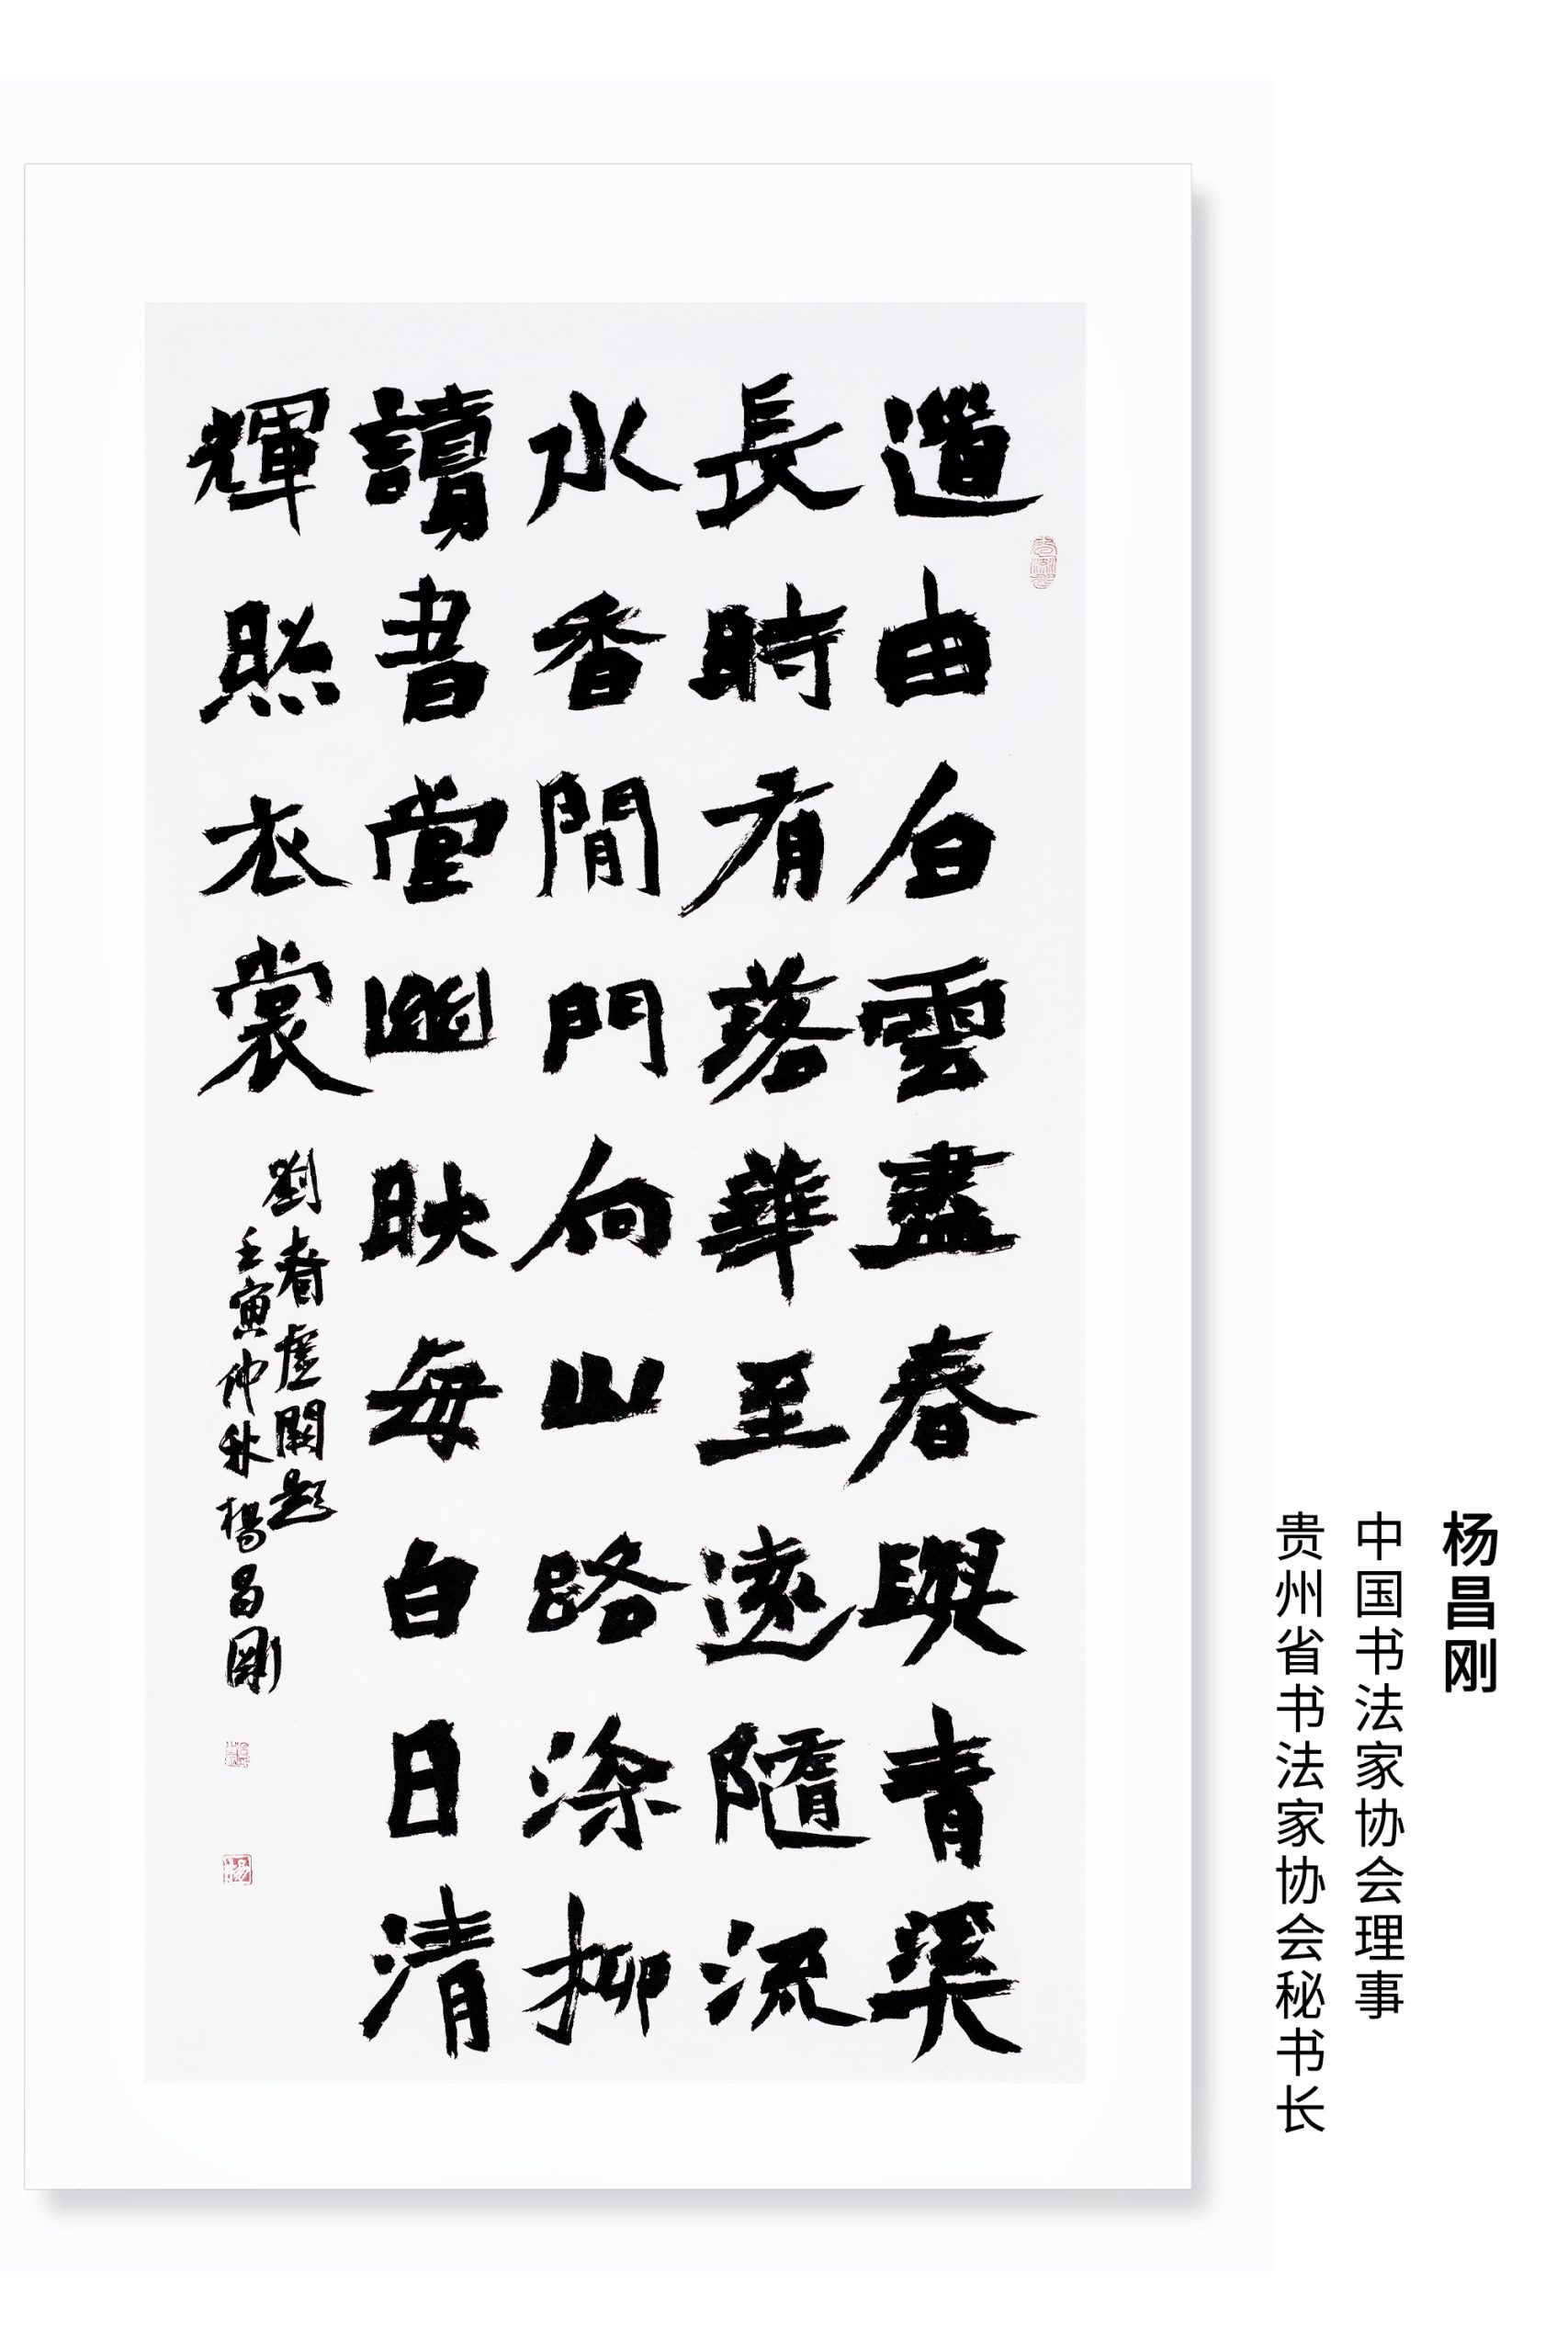 道由白雲盡春與青溪
長時有落華至遠隨流
水香閒門向山路深柳
讀書堂幽映每白日清
輝照衣裳
劉眘虛闕題
壬寅仲秋楊昌剛
杨昌刚
中国书法家协会理事
贵州省书法家协会秘书长